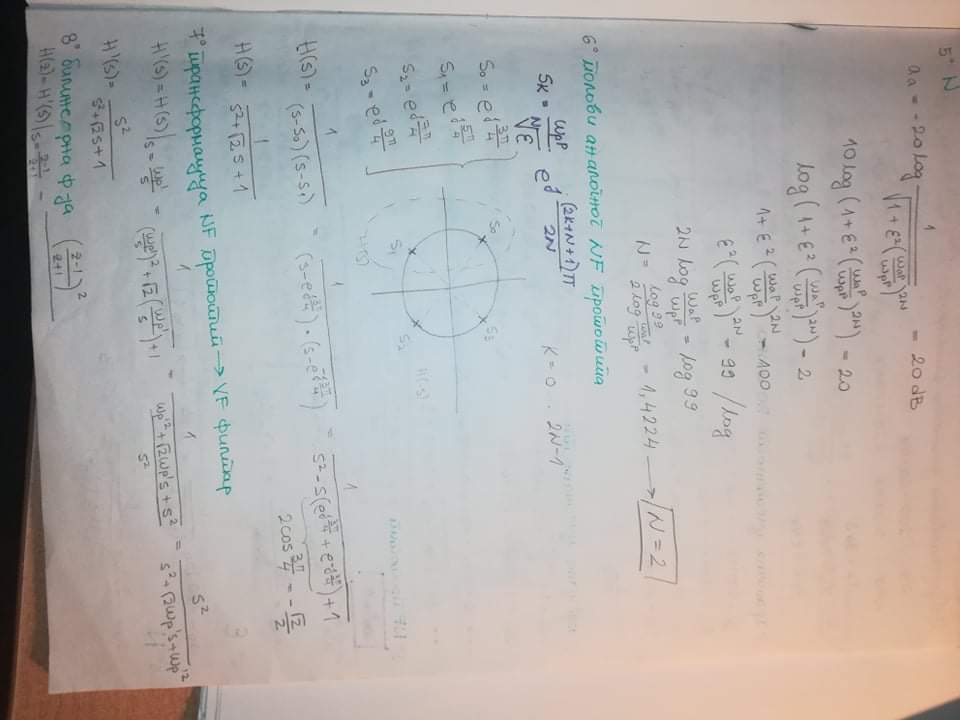 5° N
a_a = -20 log 1/√(1+ε²(ω_ap/ω_pp)^2N) = 20 dB
10 log (1+ε²(ω_ap/ω_pp)^2N) = 20
log (1+ε²(ω_ap/ω_pp)^2N) = 2
1+ε²(ω_ap/ω_pp)^2N = 100
ε²(ω_ap/ω_pp)^2N = 99 / log
2N log ω_ap/ω_pp = log 99
N = log 99/(2 log ω_ap/ω_pp) = 1,4224 → N=2
6° полови аналогног NF прототипа
s_k = ω_pp/ᴺ√ε e^(j(2k+N+1)π/2N) k = 0 . 2N-1
s_0 = e^(j3π/4)
s_1 = e^(j5π/4)
s_2 = e^(j7π/4)
s_3 = e^(j9π/4)
s_0 s_1 s_2 s_3
H(s) H(-s)
H(s) = 1/((s-s_0)(s-s_1)) = 1/((s-e^(j3π/4))·(s-e^(-j3π/4))) = 1/(s²-s(e^(j3π/4)+e^(-j3π/4))+1)
2cos 3π/4 = -√2/2
H(s) = 1/(s²+√2s+1)
7° трансформација NF прототип → VF филтар
H'(s) = H(s)|s=ω_p'/s = 1/((ω_p'/s)²+√2(ω_p'/s)+1) = 1/((ω_p'²+√2ω_p's+s²)/s²) = s²/(s²+√2ω_p's+ω_p'²)
H'(s) = s²/(s²+√2s+1)
8° билинеарна ф-ја
H(z) = H'(s)|s=(z-1)/(z+1) = ((z-1)/(z+1))²